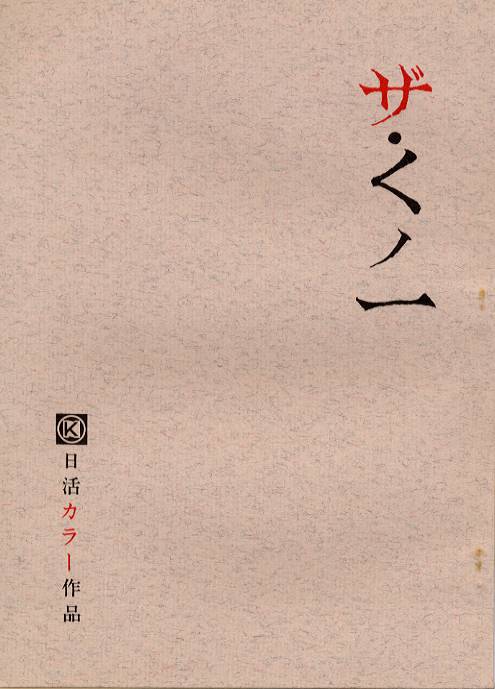 ザ・くノ一
K日活カラー作品